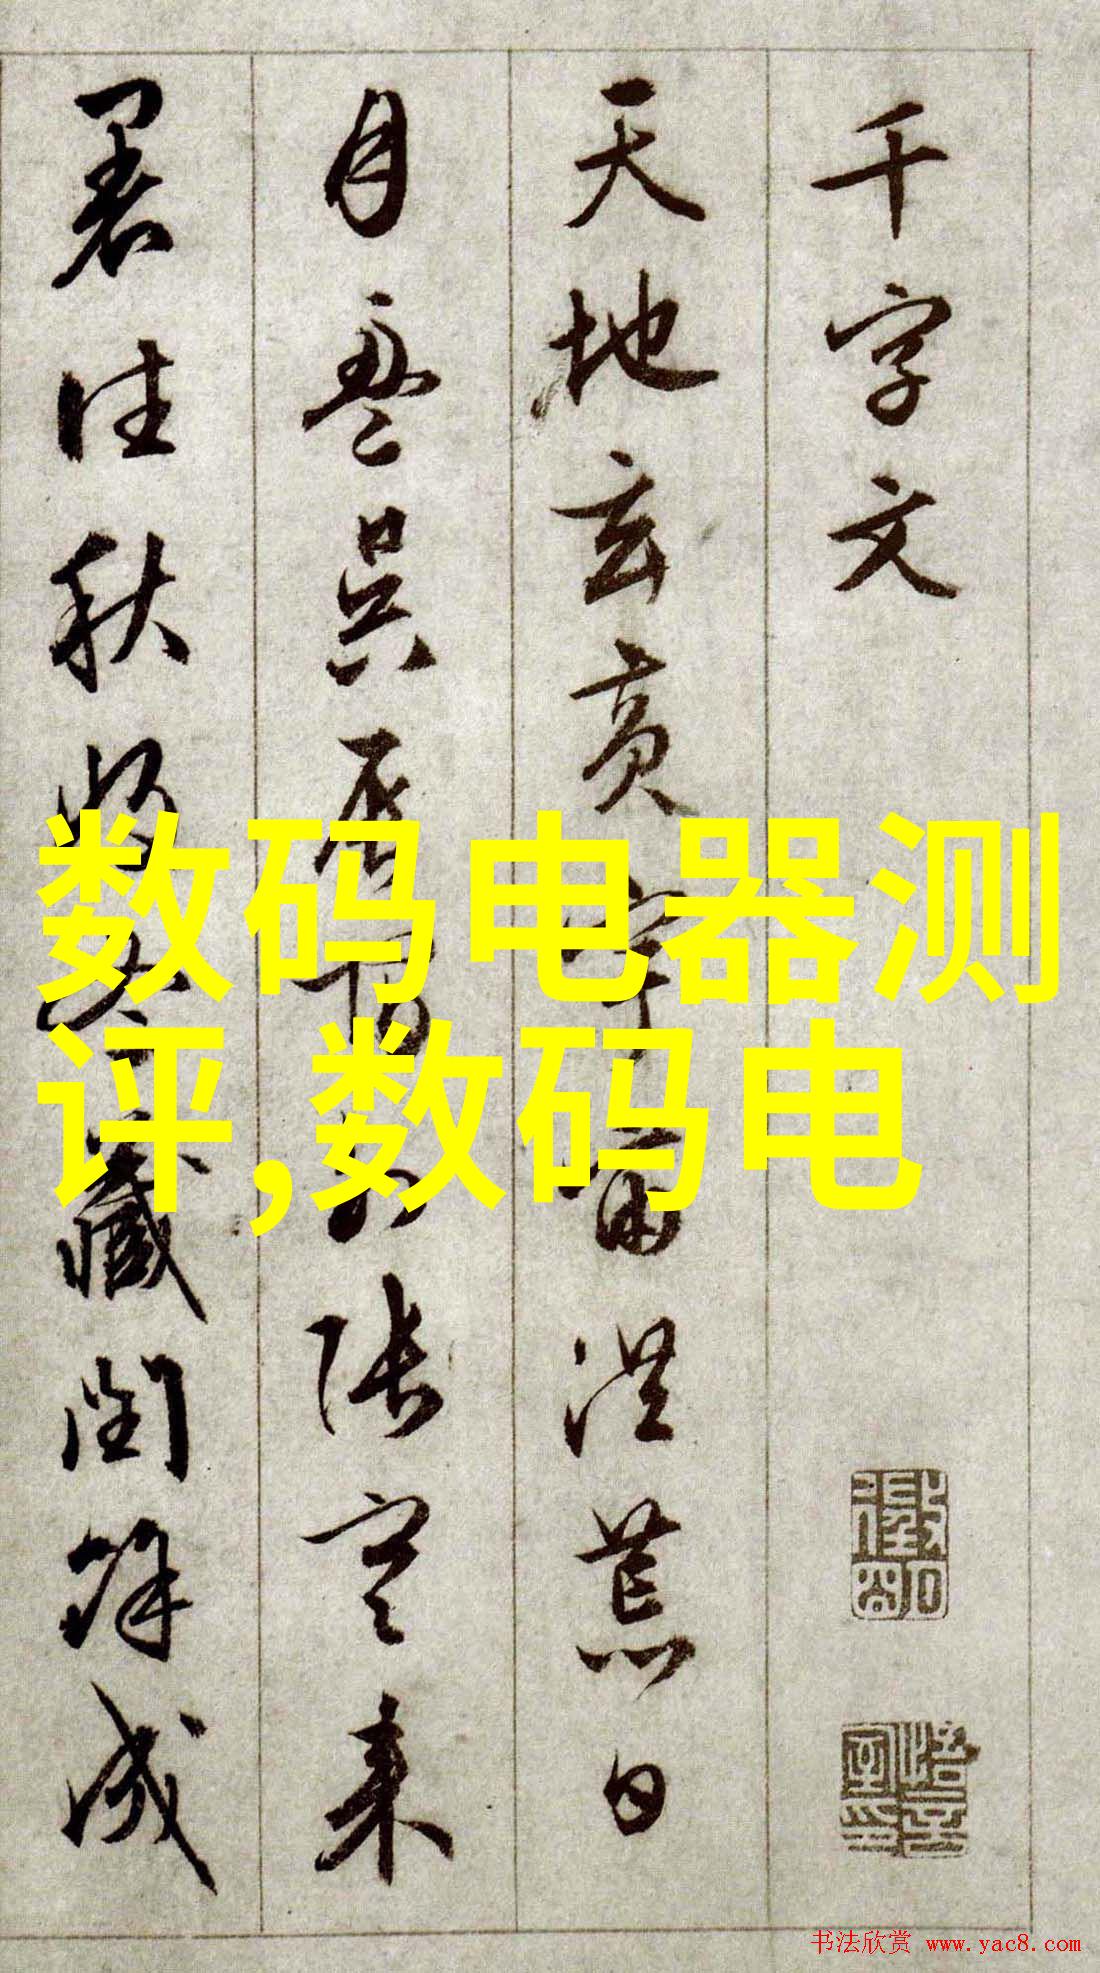 千字文
天地玄黃宇宙洪荒日
月盈昃辰宿列張寒來
暑往秋收冬藏閏餘成
数码电器测
评,数码电
书法欣赏 www.yac8.com